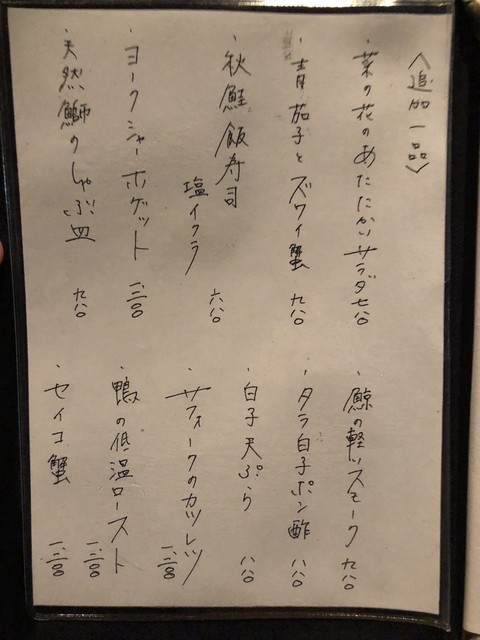 〈追加一品〉
・菜の花のあたたかいサラダ 七八〇
・青茄子とズワイ蟹 九八〇
・秋鮭飯寿司
塩イクラ 六八〇
・ヨークシャーホゲット 一二八〇
・天然鰤のしゃぶ皿 九八〇
・鯨の軽いスモーク 九八〇
・タラ白子ポン酢 八八〇
・白子天ぷら 八八〇
・サフォークのカツレツ 一二八〇
・鴨の低温ロースト 一二八〇
・セイコ蟹 一二八〇